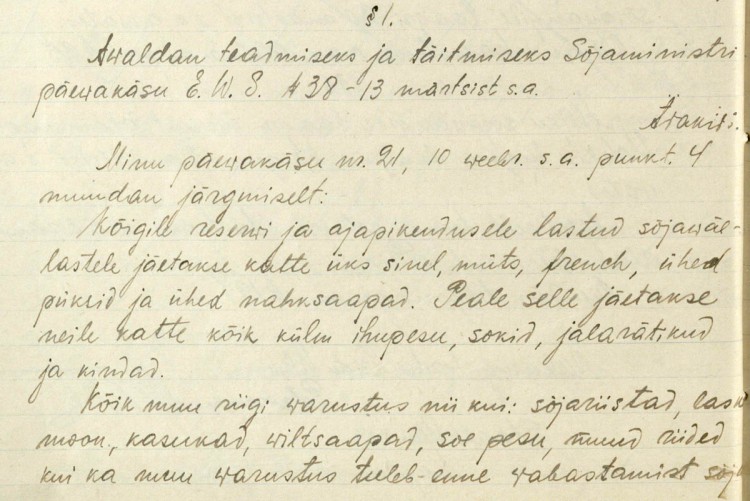 § 1.
Awaldan teadmiseks ja täitmiseks Sõjaministri
päewakäsu E. W. S. № 38 - 13 martsist s.a.
Ärakiri.
Minu päewakäsu nr. 21, 10 weebr. s.a. punkt. 4
muudan järgmiselt:
Kõigile reserwi ja ajapikendusele lastud sõjawäe-
lastele jäetakse kätte üks sinel, müts, french, ühed
püksid ja ühed nahksaapad. Peale selle jäetakse
neile kätte kõik külm ihupesu, sokid, jalarätikud
ja kindad.
Kõik muu riigi warustus nii kui: sõjariistad, laske
moon, kasukad, wiltsaapad, soe pesu, muud riided
kui ka muu warustus tuleb enne wabastamist